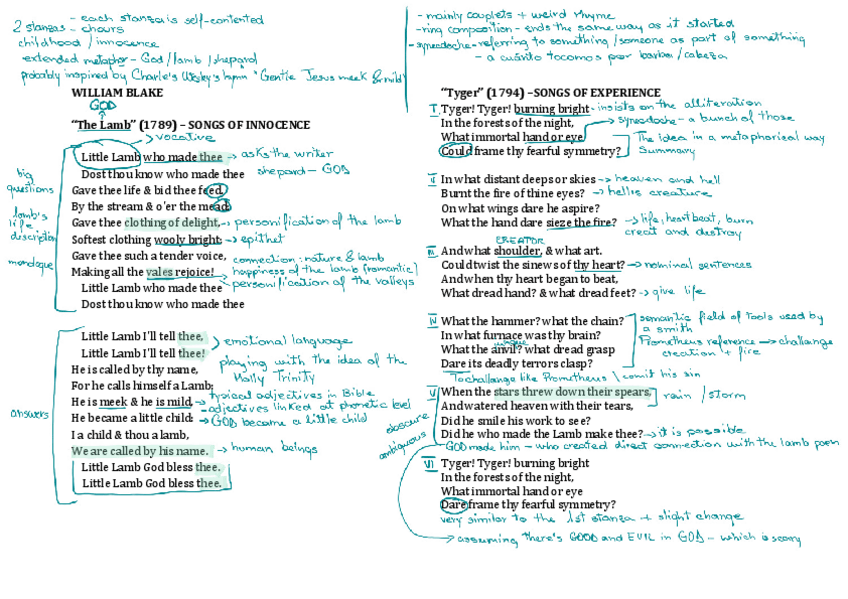 2 stanzas - each stanza is self-contented
- chours
childhood / innocence
extended metaphor - God / lamb / shepard
probably inspired by Charle's Wesley's hymn "Gentle Jesus meek & mild"
WILLIAM BLAKE
GOD
"The Lamb" (1789) – SONGS OF INNOCENCE
vocative
Little Lamb who made thee → asks the writer
Dost thou know who made thee shepard - GOD
big questions
Gave thee life & bid thee feed.
By the stream & o'er the mead;
lamb's life discription
Gave thee clothing of delight, → personification of the lamb
Softest clothing wooly bright; → epithet
Gave thee such a tender voice, connection: nature & lamb
monologue
Making all the vales rejoice! → happiness of the lamb (romantic)
Little Lamb who made thee personification of the valleys
Dost thou know who made thee
Little Lamb I'll tell thee, emotional language
Little Lamb I'll tell thee!
He is called by thy name, playing with the idea of the
For he calls himself a Lamb: Holly Trinity
He is meek & he is mild, → typical adjectives in Bible
- adjectives linked at phonetic level
answers
He became a little child: → GOD became a little child
I a child & thou a lamb,
We are called by his name. → human beings
Little Lamb God bless thee.
Little Lamb God bless thee.
- mainly couplets + weird rhyme
- ring composition - ends the same way as it started
- synecdoche - referring to something/someone as part of something
- a cuánto tocamos por barba/cabeza
"Tyger" (1794) – SONGS OF EXPERIENCE
I Tyger! Tyger! burning bright - insists on the alliteration
In the forests of the night, synecdoche - a bunch of those
What immortal hand or eye The idea in a metaphorical way
Could frame thy fearful symmetry? Summary
II In what distant deeps or skies → heaven and hell
Burnt the fire of thine eyes? → hellis creature
On what wings dare he aspire?
What the hand dare sieze the fire? → life, heart beat, burn
creat and destroy
CREATOR
III And what shoulder, & what art.
Could twist the sinews of thy heart? → nominal sentences
And when thy heart began to beat,
What dread hand? & what dread feet? → give life
IV What the hammer? what the chain? semantic field of tools used by a smith
In what furnace was thy brain?
What the anvil? what dread grasp Prometheus reference → challange
Dare its deadly terrors clasp? creation + fire
To challange like Prometheus \ comit his sin
V When the stars threw down their spears, rain / storm
And watered heaven with their tears,
Did he smile his work to see?
obscure ambiguous
Did he who made the Lamb make thee? → it is possible
GOD made him - who created direct connection with the lamb poem
VI Tyger! Tyger! burning bright
In the forests of the night,
What immortal hand or eye
Dare frame thy fearful symmetry?
very similar to the 1st stanza + slight change
→ assuming there's GOOD and EVIL in GOD - which is scary